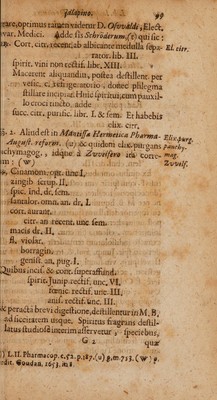 Jalapino. 99
optimus videtur D. Osvvaldi, Elect.
Medici. Adde sis Schröderum, (t) qui sic:
Cort. citr. recent. ab albicante medulla sepa- El. citr.
rator. lib. III.
spirit. vini non rectif. libr. XIII.
Macerent aliquandiu, postea destillent. per
vesic. c. refrigeratorio, donec phlegma
stillare incipiat. Huic spiritui, cum pauxil-
lo croci tincto, adde
succ. citr. purific. lib. I. & sem. Et habebis
elix. citr.
Aliud est in Mantissa Hermetica Pharma- Elix. purg.
August. reform. (u) & quidem elix. purgans panchy-
mag.
pachymagog, idque à Zvvelfero ita corre- Zvvelf.
(w)
Cinamom. opt. unc. I.
zingib. scrup. II.
spic. ind. dr. sem.
santalor. omn. an. dr. I.
cort. aurant.
citr. an. recent. unc. sem.
macis dr. II.
fl. violar.
borragin.
genist. an. pug. I.
Quibus incis. & cont. superaffund.
spirit. Junip. rectif. unc. VI.
fœnic. rectif. unc. III.
anis. rectif. unc. III.
& peracta brevi digestione, destillentur in M. B.
ad siccitatem usque. Spiritus fragrans destil-
latus studiosè interim asservetur, speciebus,
G 2 quæ
L. II. Pharmacop. c. 52. p. 187. (u) p. m. 753. (w) p.
edit. Goudan. 1653. m. 8.